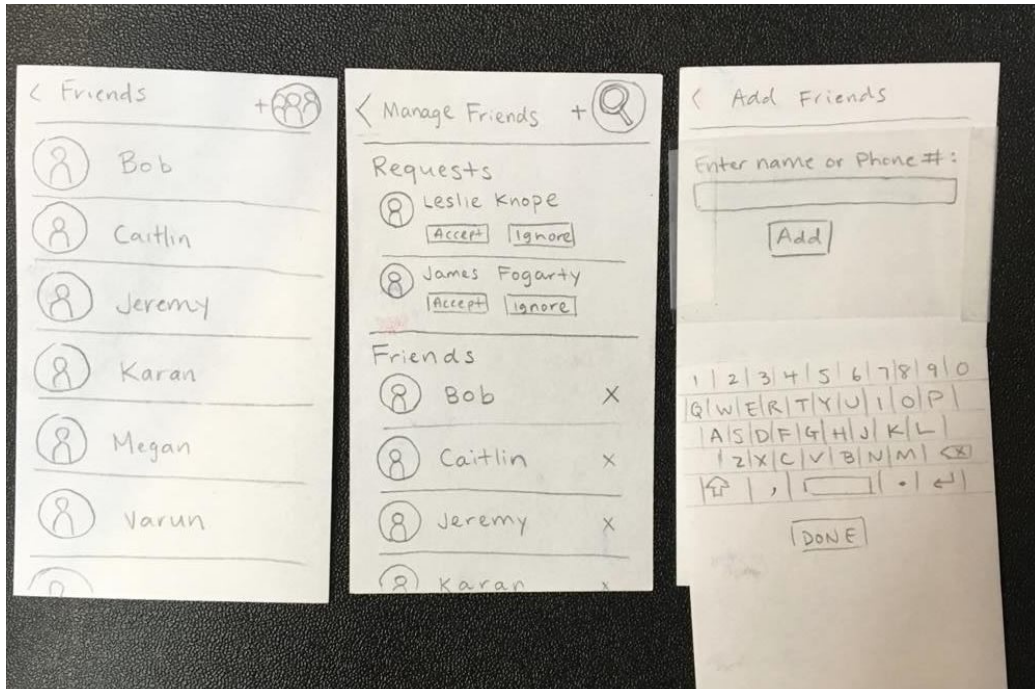 < Friends +
Bob
Caitlin
Jeremy
Karan
Megan
Varun
< Manage Friends +
Requests
Leslie Knope
Accept Ignore
James Fogarty
Accept Ignore
Friends
Bob X
Caitlin X
Jeremy X
Karan X
< Add Friends
Enter name or Phone #:
Add
1 2 3 4 5 6 7 8 9 0
Q W E R T Y U I O P
A S D F G H J K L
Z X C V B N M X
, .
DONE